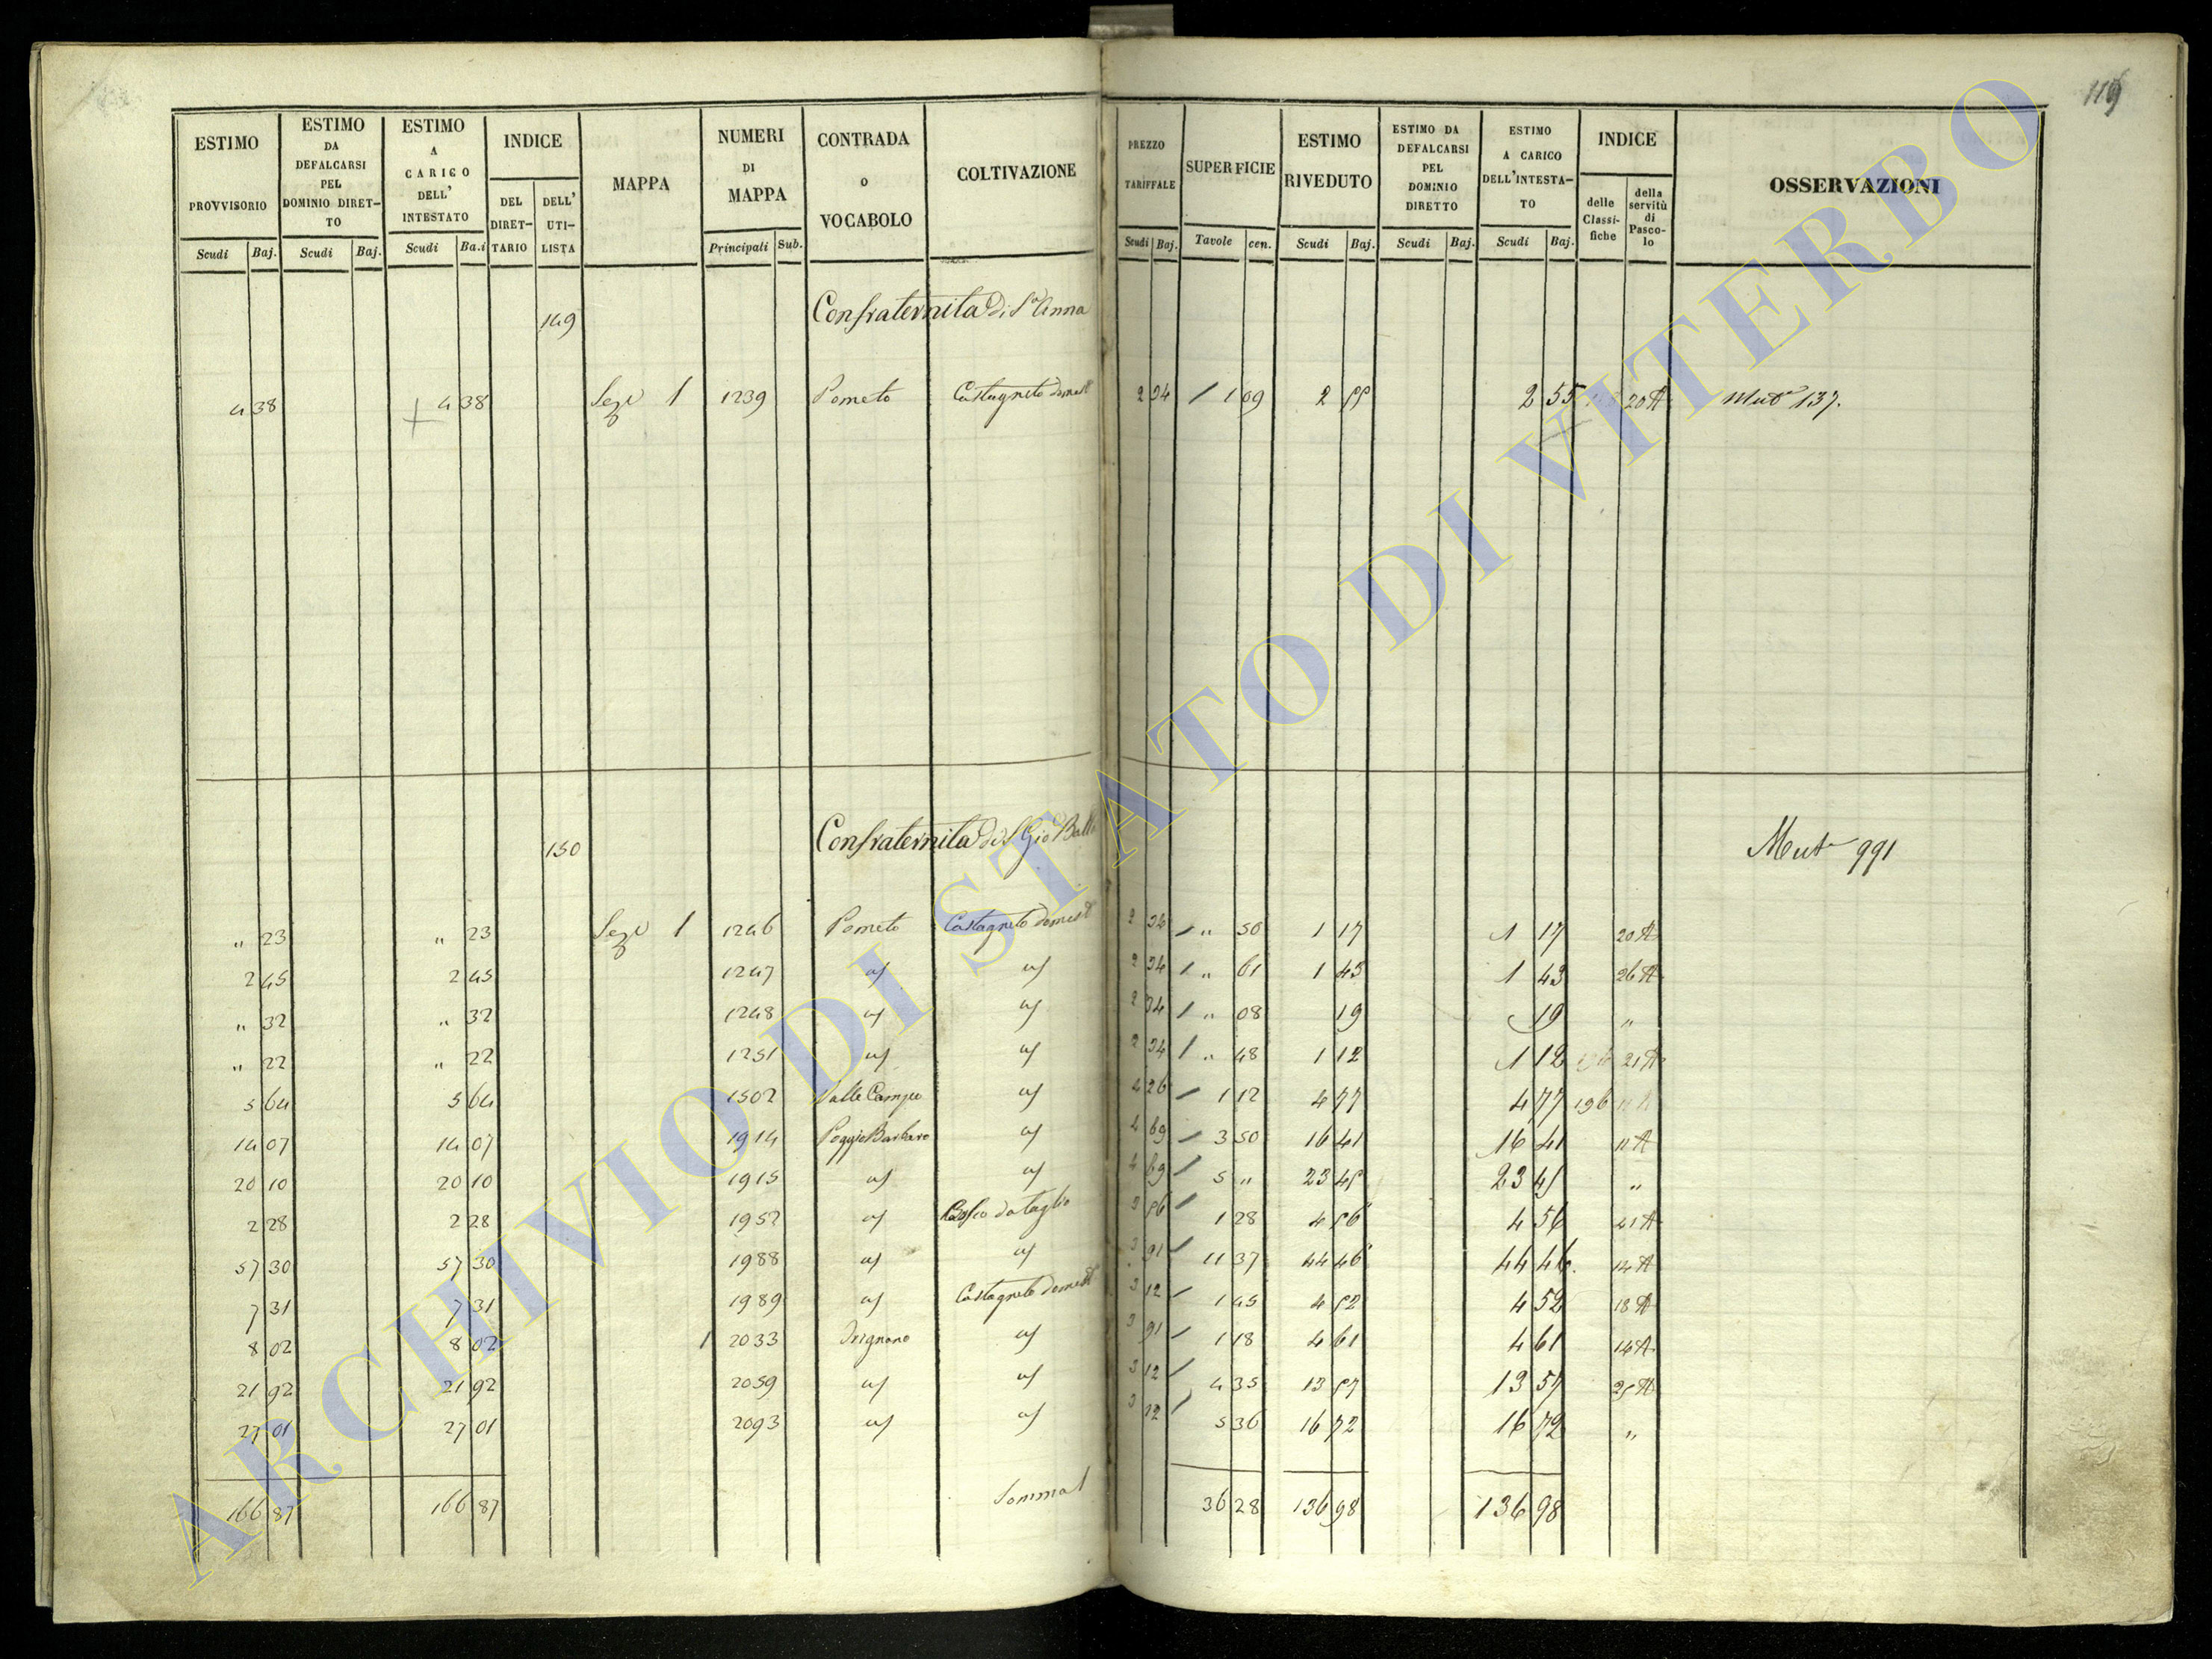 119
ESTIMO PROVVISORIO | ESTIMO DA DEFALCARSI PEL DOMINIO DIRETTO | ESTIMO A CARICO DELL' INTESTATO | INDICE | MAPPA | NUMERI DI MAPPA | CONTRADA O VOCABOLO | COLTIVAZIONE | PREZZO TARIFFALE | SUPERFICIE | ESTIMO RIVEDUTO | ESTIMO DA DEFALCARSI PEL DOMINIO DIRETTO | ESTIMO A CARICO DELL'INTESTA-TO | INDICE | OSSERVAZIONI
Scudi | Baj. | Scudi | Baj. | Scudi | Ba.i | DEL DIRET-TARIO | DELL' UTI-LISTA | Principali | Sub. | Scudi | Baj. | Tavole | cen. | Scudi | Baj. | Scudi | Baj. | Scudi | Baj. | delle Classi-fiche | della servitù di Pasco-lo
149 Confraternita di S. Anna
4 38 | 4 38 | Seze 1 | 1239 | Pometo | Castagneto domest | 2 34 | 1 09 | 2 55 | 2 55 | 20 A | Mut 137.
150 Confraternita di S Gio Batt | Mut 991
" 23 | " 23 | Seze 1 | 1246 | Pometo | Castagneto domest | 2 34 | " 50 | 1 17 | 1 17 | 20 A
2 45 | 2 45 | 1247 | " 61 | 1 43 | 1 43 | 26 A
" 32 | " 32 | 1248 | 2 34 | " 08 | 19 | 19 | "
" 22 | " 22 | 1251 | 2 34 | " 48 | 1 12 | 1 12 | 21 A
5 64 | 5 64 | 1502 | Valle Campo | 4 26 | 1 12 | 4 77 | 4 77 | 196
14 07 | 14 07 | 1914 | Poggio Barbaro | 4 69 | 3 50 | 16 41 | 16 41 | 11 A
20 10 | 20 10 | 1915 | 4 69 | 5 " | 23 45 | 23 45 | "
2 28 | 2 28 | 1952 | Bosco da taglio | 3 56 | 1 28 | 4 56 | 4 56 | 41 A
57 30 | 57 30 | 1988 | 3 91 | 11 37 | 44 46 | 44 46. | 14 A
7 31 | 7 31 | 1989 | Castagneto domest | 3 12 | 1 45 | 4 52 | 4 52 | 18 A
8 02 | 8 02 | 1 | 2033 | Irignano | 3 91 | 1 18 | 4 61 | 4 61 | 14 A
21 92 | 21 92 | 2059 | 3 12 | 4 35 | 13 57 | 13 57 | 25 A
27 01 | 27 01 | 2093 | 3 12 | 5 36 | 16 72 | 16 72 | "
166 87 | 166 87 | Somma | 36 28 | 136 98 | 136 98
ARCHIVIO DI STATO DI VITERBO